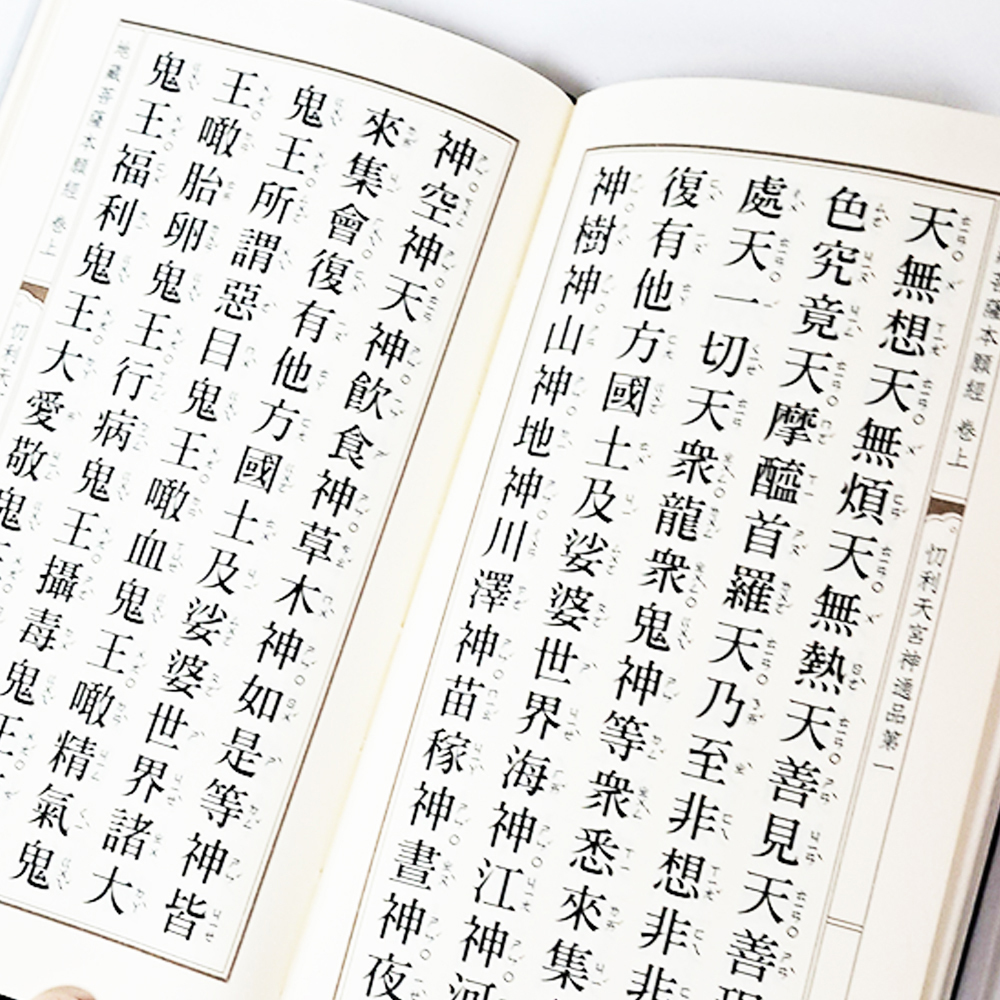 菩薩本願經 卷上
忉利天宮神通品第一
天無想天無煩天無熱天善見天善現
色究竟天摩醯首羅天乃至非想非非
處天一切天衆龍衆鬼神等衆悉來集
復有他方國土及娑婆世界海神江神河
神樹神山神地神川澤神苗稼神晝神夜
神空神天神飲食神草木神如是等神皆
來集會復有他方國土及娑婆世界諸大
鬼王所謂惡目鬼王噉血鬼王噉精氣鬼
王噉胎卵鬼王行病鬼王攝毒鬼王
鬼王福利鬼王大愛敬鬼
地藏菩薩本願經 卷上
忉利天